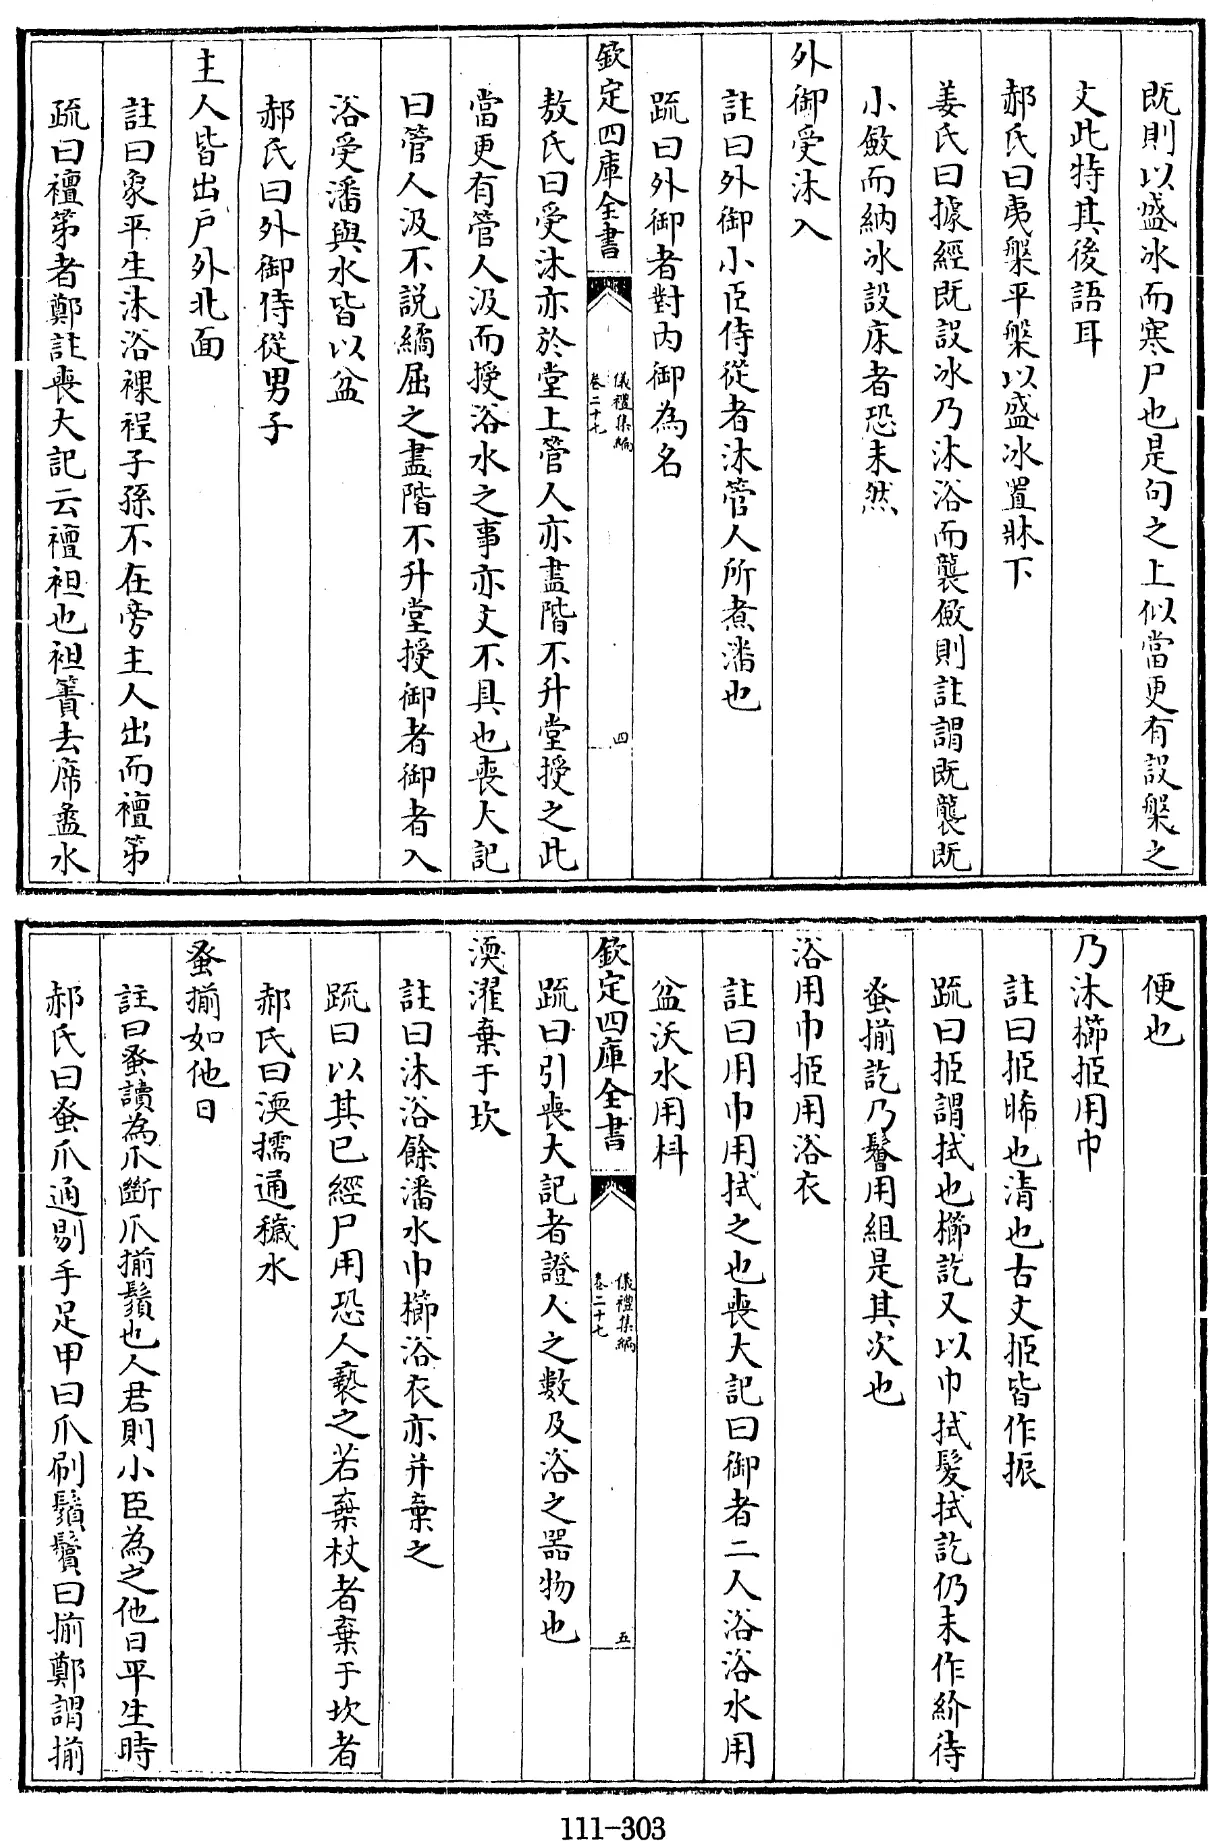 既則以盛冰而寒尸也是句之上似當更有設槃之
文此特其後語耳
郝氏曰夷槃平槃以盛冰置牀下
姜氏曰據經既設冰乃沐浴而襲斂則註謂既襲既
小斂而納冰設床者恐未然
外御受沐入
註曰外御小臣侍從者沐管人所煮潘也
疏曰外御者對内御為名
欽定四庫全書
儀禮集編
卷二十七
四
敖氏曰受沐亦於堂上管人亦盡階不升堂授之此
當更有管人汲而授浴水之事亦文不具也喪大記
曰管人汲不說繘屈之盡階不升堂授御者御者入
浴受潘與水皆以盆
郝氏曰外御侍從男子
主人皆出戶外北面
註曰象平生沐浴裸裎子孫不在旁主人出而襢笫
疏曰襢笫者鄭註喪大記云襢袒也袒簀去席盝水
便也
乃沐櫛挋用巾
註曰挋晞也清也古文挋皆作振
疏曰挋謂拭也櫛訖又以巾拭髮拭訖仍未作紒待
蚤揃訖乃鬠用組是其次也
浴用巾挋用浴衣
註曰用巾用拭之也喪大記曰御者二人浴浴水用
盆沃水用枓
欽定四庫全書
儀禮集編
卷二十七
五
疏曰引喪大記者證人之數及浴之器物也
渜濯棄于坎
註曰沐浴餘潘水巾櫛浴衣亦并棄之
疏曰以其已經尸用恐人褻之若棄杖者棄于坎者
郝氏曰渜擩通穢水
蚤揃如他日
註曰蚤讀為爪斷爪揃鬚也人君則小臣為之他日平生時
郝氏曰蚤爪通剔手足甲曰爪刷鬚鬢曰揃鄭謂揃
111-303